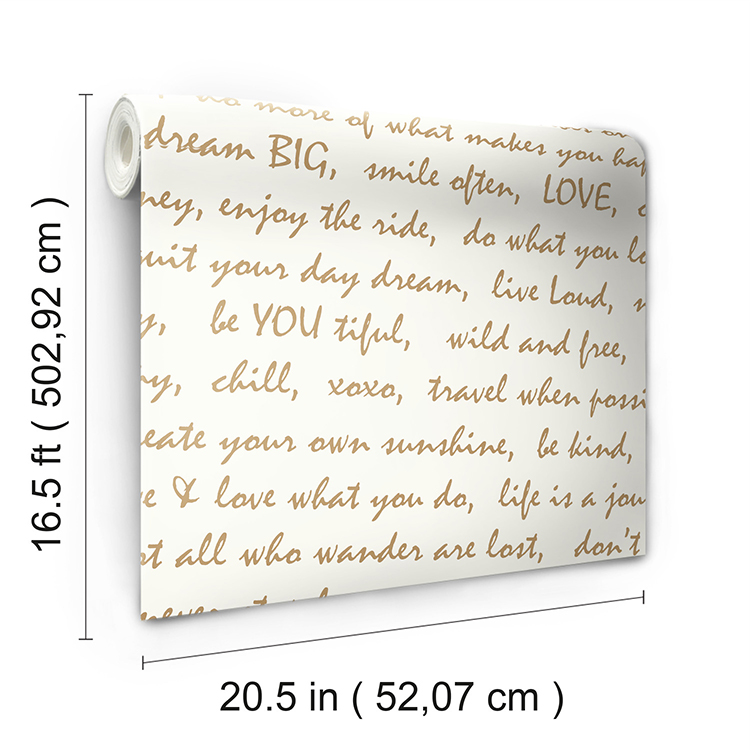 do more of what makes you hap
dream BIG, smile often, LOVE,
ney, enjoy the ride, do what you lo
suit your day dream, live Loud,
y, be YOU tiful, wild and free,
y, chill, xoxo, travel when possi
eate your own sunshine, be kind,
e & love what you do, life is a jou
ot all who wander are lost, don't
16.5 ft ( 502,92 cm )
20.5 in ( 52,07 cm )